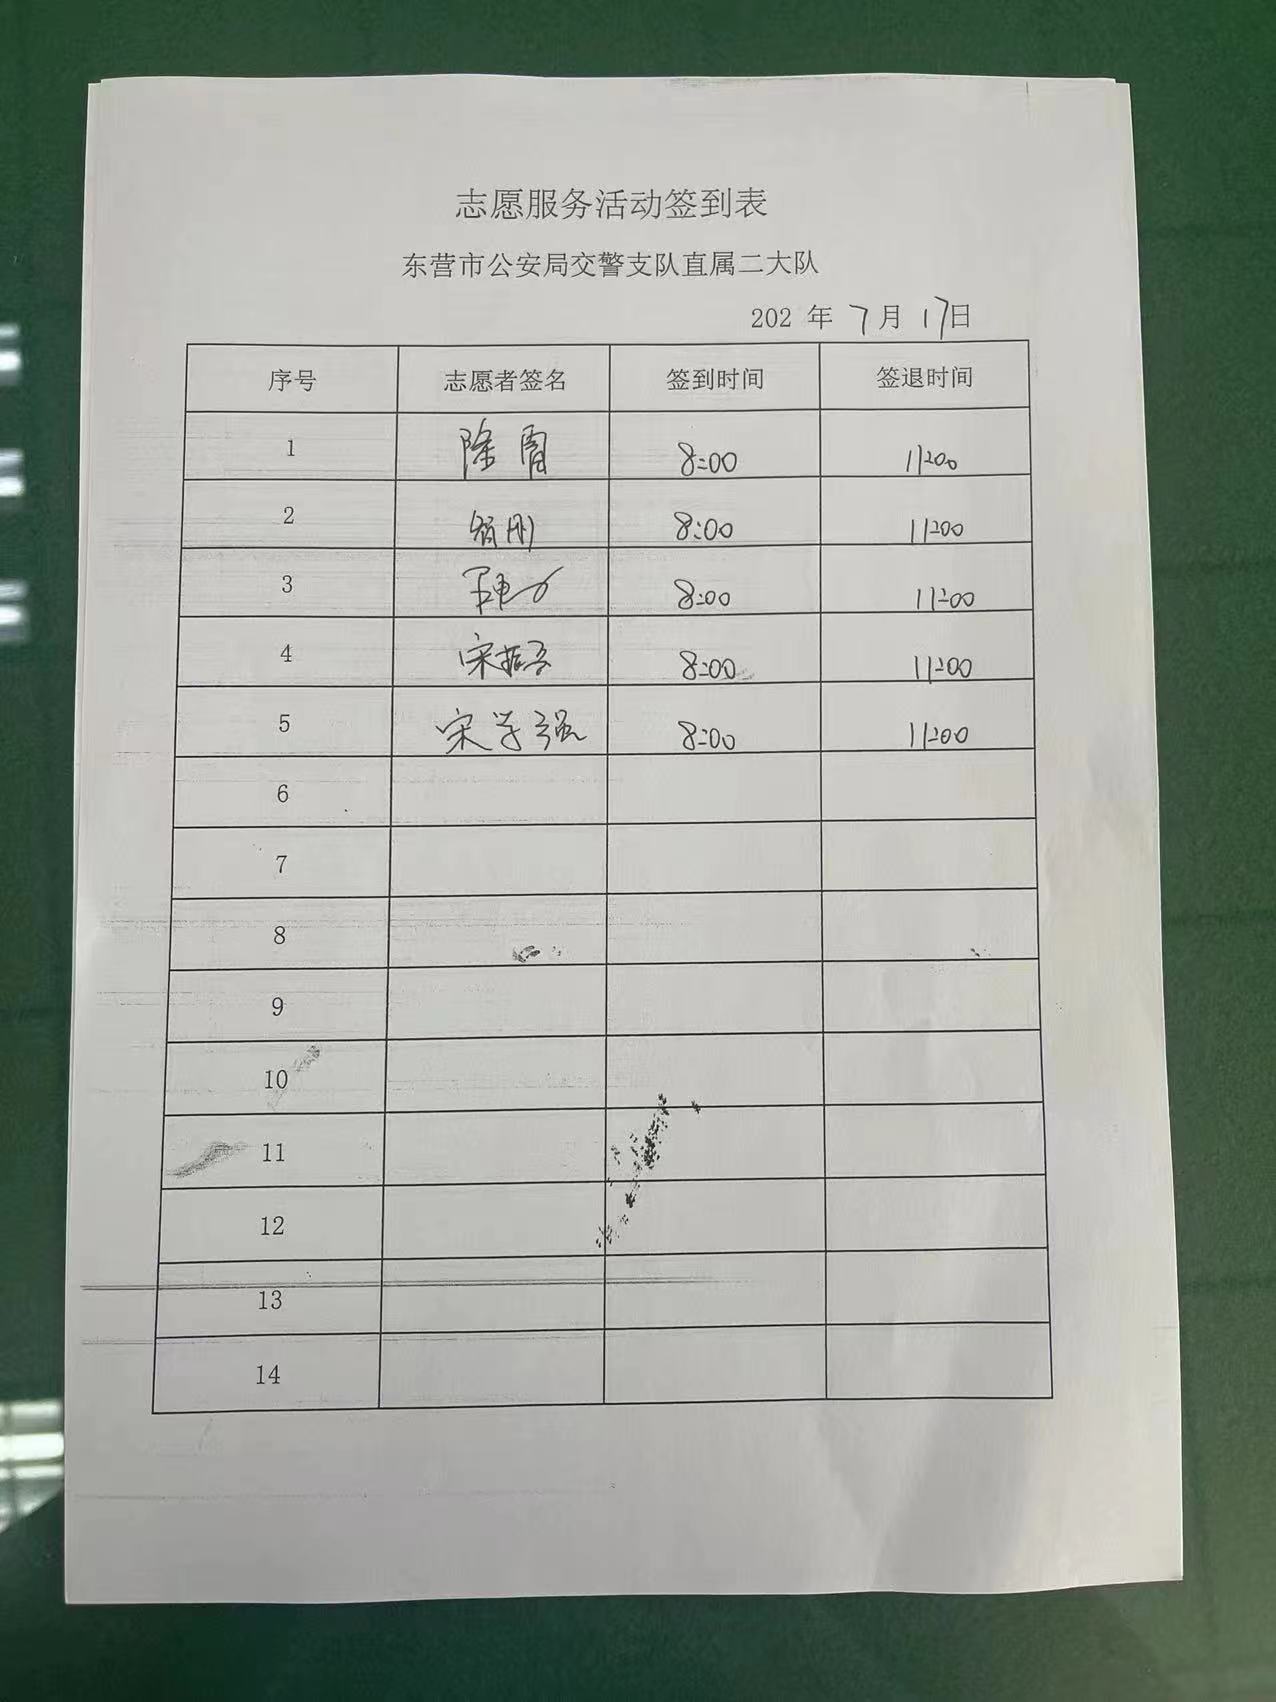 志愿服务活动签到表
东营市公安局交警支队直属二大队
202 年 7 月 17日
序号 志愿者签名 签到时间 签退时间
1 8:00 11:00
2 8:00 11:00
3 8:00 11:00
4 宋 8:00 11:00
5 宋学强 8:00 11:00
6
7
8
9
10
11
12
13
14